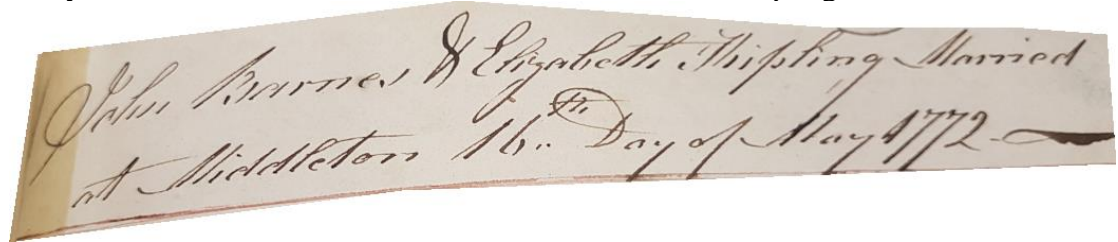 John Barnes & Elizabeth Thipling Married
at Middleton 16th Day of May 1772